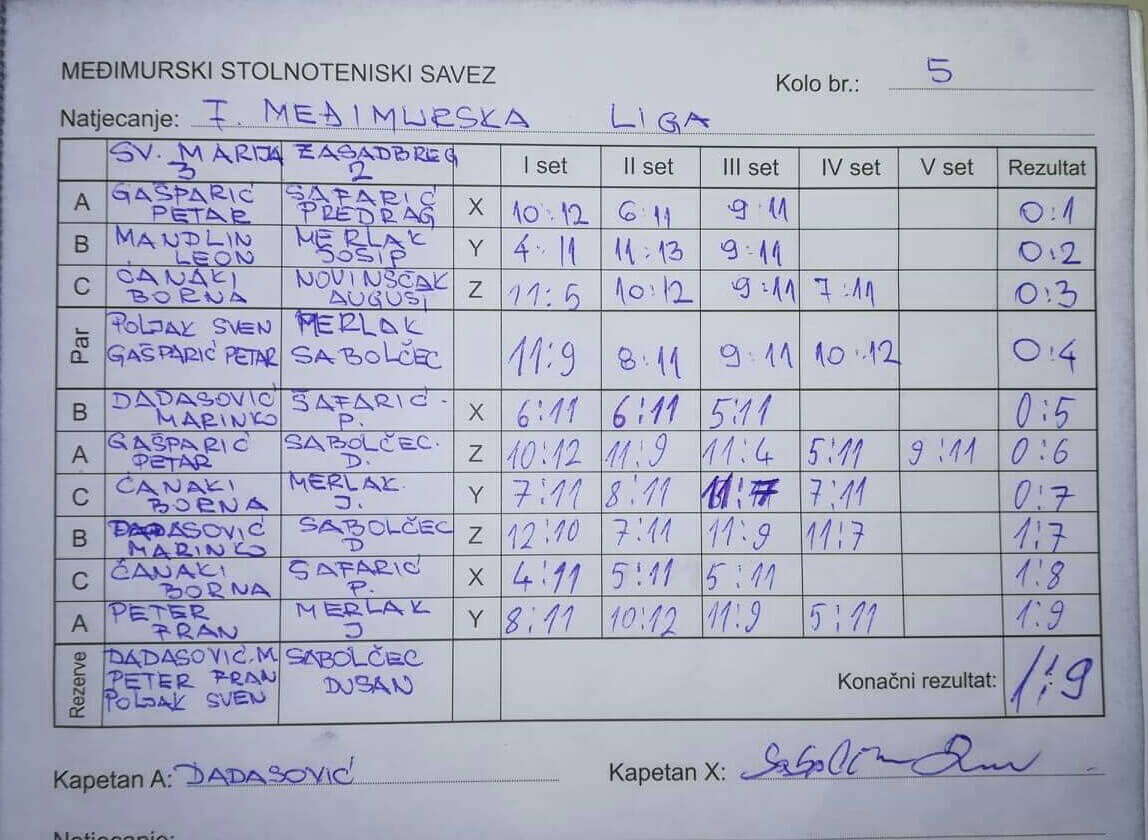 MEĐIMURSKI STOLNOTENISKI SAVEZ
Kolo br.: 5
Natjecanje: I. MEĐIMURSKA LIGA
SV. MARIJA 3 ZASADBREG 2 I set II set III set IV set V set Rezultat
A GAŠPARIĆ PETAR ŠAFARIĆ PREDRAG X 10:12 6:11 9:11 0:1
B MANDLIN LEON MERLAK JOSIP Y 4:11 11:13 9:11 0:2
C ČANAKI BORNA NOVINŠČAK AUGUST Z 11:5 10:12 9:11 7:11 0:3
Par POLJAK SVEN GAŠPARIĆ PETAR MERLAK SABOLČEC 11:9 8:11 9:11 10:12 0:4
B DADASOVIĆ MARINKO ŠAFARIĆ P. X 6:11 6:11 5:11 0:5
A GAŠPARIĆ PETAR SABOLČEC D. Z 10:12 11:9 11:4 5:11 9:11 0:6
C ČANAKI BORNA MERLAK J. Y 7:11 8:11 11:7 7:11 0:7
B DADASOVIĆ MARINKO SABOLČEC D Z 12:10 7:11 11:9 11:7 1:7
C ČANAKI BORNA ŠAFARIĆ P. X 4:11 5:11 5:11 1:8
A PETER FRAN MERLAK J Y 8:11 10:12 11:9 5:11 1:9
Rezerve DADASOVIĆ.M PETER FRAN POLJAK SVEN SABOLČEC DUŠAN Konačni rezultat: 1:9
Kapetan A: DADASOVIĆ
Kapetan X:
Natjecanje: